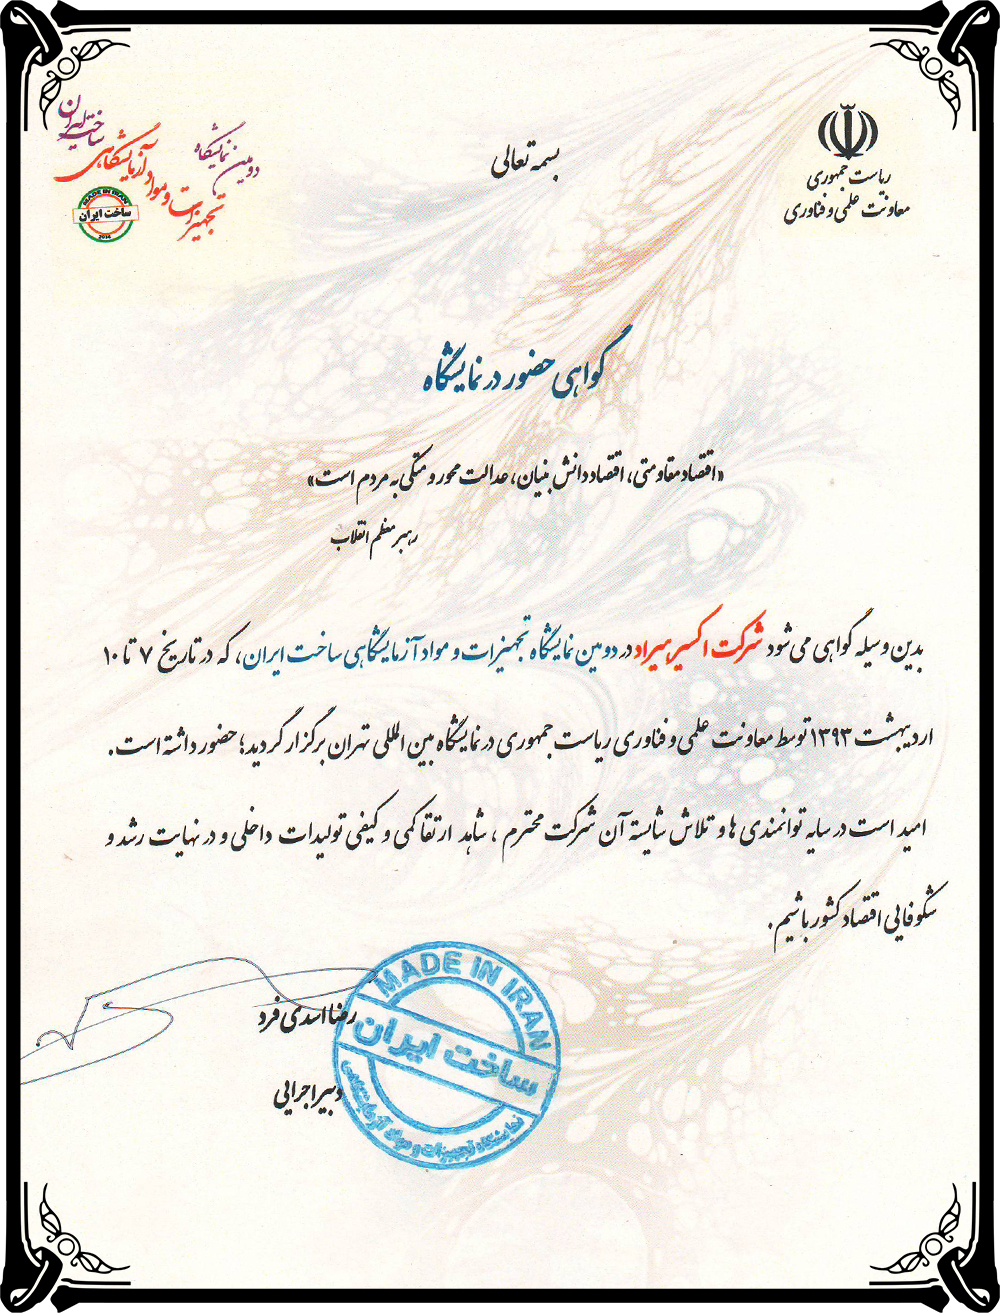 بسمه تعالی
ریاست جمهوری
معاونت علمی و فناوری
دومین نمایشگاه
تجهیزات و مواد آزمایشگاهی
ساخت ایران
MADE IN IRAN
ساخت ایران
2014
گواهی حضور در نمایشگاه
«اقتصاد مقاومتی، اقتصاد دانش بنیان، عدالت محور و متکی به مردم است»
رهبر معظم انقلاب
بدین وسیله گواهی می شود شرکت اکسیر مهراد در دومین نمایشگاه تجهیزات و مواد آزمایشگاهی ساخت ایران، که در تاریخ ۷ تا ۱۰
اردیبهشت ۱۳۹۳ توسط معاونت علمی و فناوری ریاست جمهوری در نمایشگاه بین المللی تهران برگزار گردید؛ حضور داشته است.
امید است در سایه توانمندی ها و تلاش شایسته آن شرکت محترم ، شاهد ارتقا کمی و کیفی تولیدات داخلی و در نهایت رشد و
شکوفایی اقتصاد کشور باشیم.
رضا اسدی فرد
دبیر اجرایی
MADE IN IRAN
ساخت ایران
نمایشگاه تجهیزات و مواد آزمایشگاهی